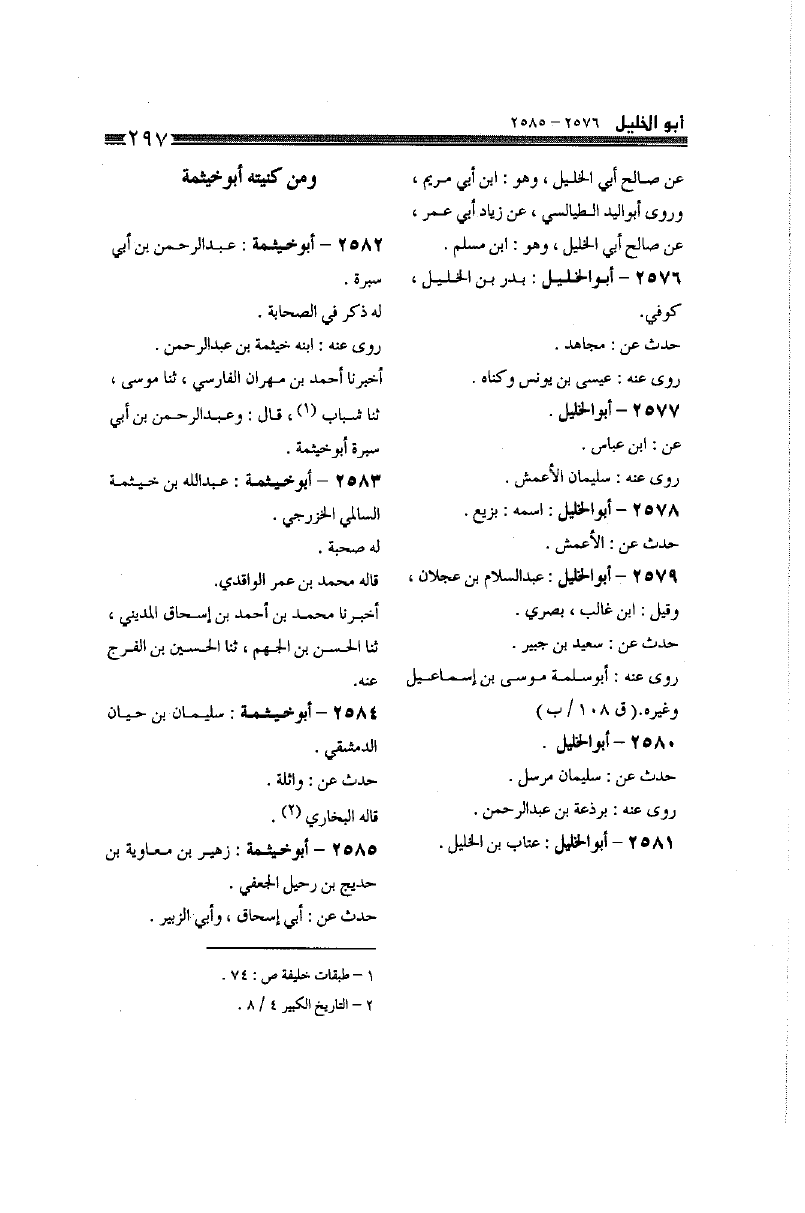 أبو الخليل ٢٥٧٦ – ٢٥٨٥
٢٩٧
عن صالح أبي الخليل ، وهو : ابن أبي مريم ،
وروى أبواليد الطيالسي ، عن زياد أبي عمر ،
عن صالح أبي الخليل ، وهو : ابن مسلم .
٢٥٧٦ – أبوالخليل : بدر بن الخليل ،
كوفي.
حدث عن : مجاهد .
روى عنه : عيسى بن يونس وكناه .
٢٥٧٧ – أبوالخليل .
عن : ابن عباس .
روى عنه : سليمان الأعمش .
٢٥٧٨ – أبوالخليل : اسمه : بزيع .
حدث عن : الأعمش .
٢٥٧٩ – أبوالخليل : عبدالسلام بن عجلان ،
وقيل : ابن غالب ، بصري .
حدث عن : سعيد بن جبير .
روى عنه : أبوسلمة موسى بن إسماعيل
وغيره.( ق ١٠٨ / ب )
٢٥٨٠ – أبوالخليل .
حدث عن : سليمان مرسل .
روى عنه : برذعة بن عبدالرحمن .
٢٥٨١ – أبوالخليل : عتاب بن الخليل .
ومن كنيته أبوخيثمة
٢٥٨٢ – أبوخيثمة : عبدالرحمن بن أبي
سبرة .
له ذكر في الصحابة .
روى عنه : ابنه خيثمة بن عبدالرحمن .
أخبرنا أحمد بن مهران الفارسي ، ثنا موسى ،
ثنا شباب (١) ، قال : وعبدالرحمن بن أبي
سبرة أبوخيثمة .
٢٥٨٣ – أبوخيثمة : عبدالله بن خيثمة
السالمي الخزرجي .
له صحبة .
قاله محمد بن عمر الواقدي.
أخبرنا محمد بن أحمد بن إسحاق المديني ،
ثنا الحسن بن الجهم ، ثنا الحسين بن الفرج
عنه.
٢٥٨٤ – أبوخيثمة : سليمان بن حيان
الدمشقي .
حدث عن : واثلة .
قاله البخاري (٢) .
٢٥٨٥ – أبوخيثمة : زهير بن معاوية بن
حديج بن رحيل الجعفي .
حدث عن : أبي إسحاق ، وأبي الزبير .
١ – طبقات خليفة ص : ٧٤ .
٢ – التاريخ الكبير ٤ / ٨ .